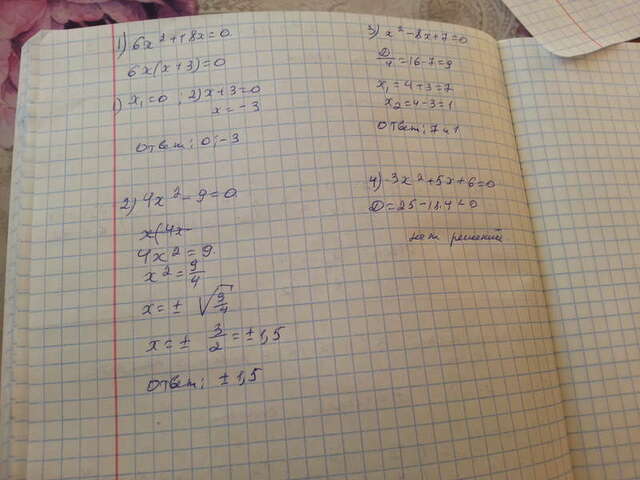 1) 6x²+18x=0
6x(x+3)=0
1) x₁=0; 2) x+3=0
x=-3
ответ: 0; -3
2) 4x²-9=0
x(4x
4x²=9
x²=9/4
x=± √9/4
x=± 3/2=±1,5
ответ: ±1,5
3) x²-8x+7=0
D/4=16-7=9
x₁=4+3=7
x₂=4-3=1
ответ: 7 и 1
4) 3x²+5x+6=0
D=25-18.4<0
нет решений